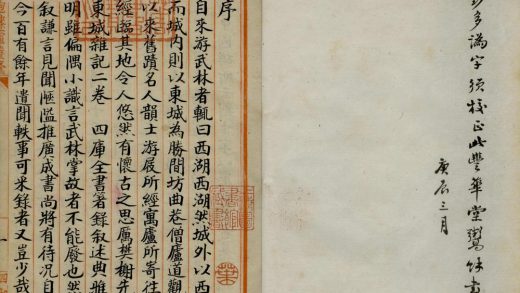 多漏字須校正此豐華堂
庚辰三月
序
自來游武林者輒曰西湖西湖然城外以西
而城内則以東城為勝間坊曲巷僧廬道觀
以來舊蹟名人韻士游屐所經寓廬所寄往
經臨其地令人悠然有懷古之思厲樊榭先
東城雜記二卷 四庫全書著錄叙述典雅
明雖偏隅小識言武林掌故者不能廢也然
叙謙言見聞陋隘推廣成書尚將有待况自
今百有餘年遺聞軼事可采錄者又豈少哉
一